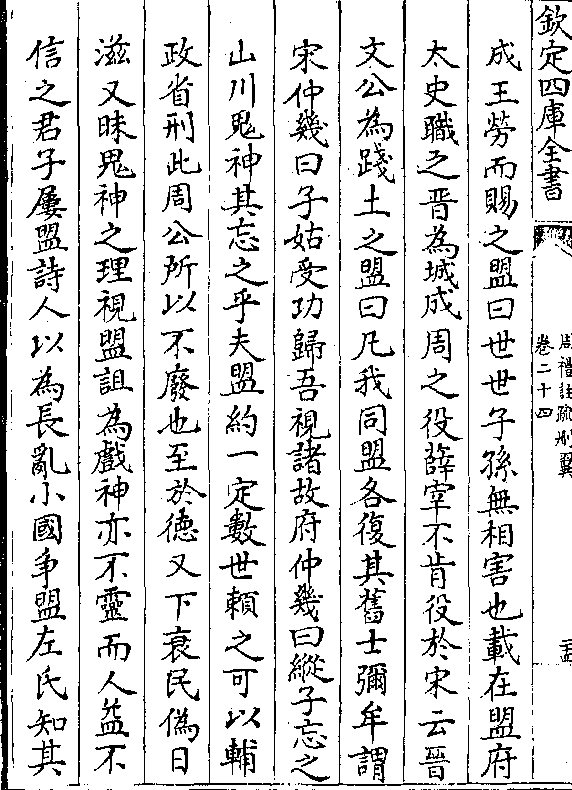 欽定四庫全書
周禮註疏刪翼
卷二十四
成王勞而賜之盟曰世世子孫無相害也載在盟府
太史職之晉為城成周之役薛宰不肯役於宋云晉
文公為踐土之盟曰凡我同盟各復其舊士彌牟謂
宋仲幾曰子姑受功歸吾視諸故府仲幾曰縱子忘之
山川鬼神其忘之乎夫盟約一定數世賴之可以輔
政省刑此周公所以不廢也至於德又下衰民偽日
滋又昧鬼神之理視盟詛為戲神亦不靈而人益不
信之君子屢盟詩人以為長亂小國爭盟左氏知其